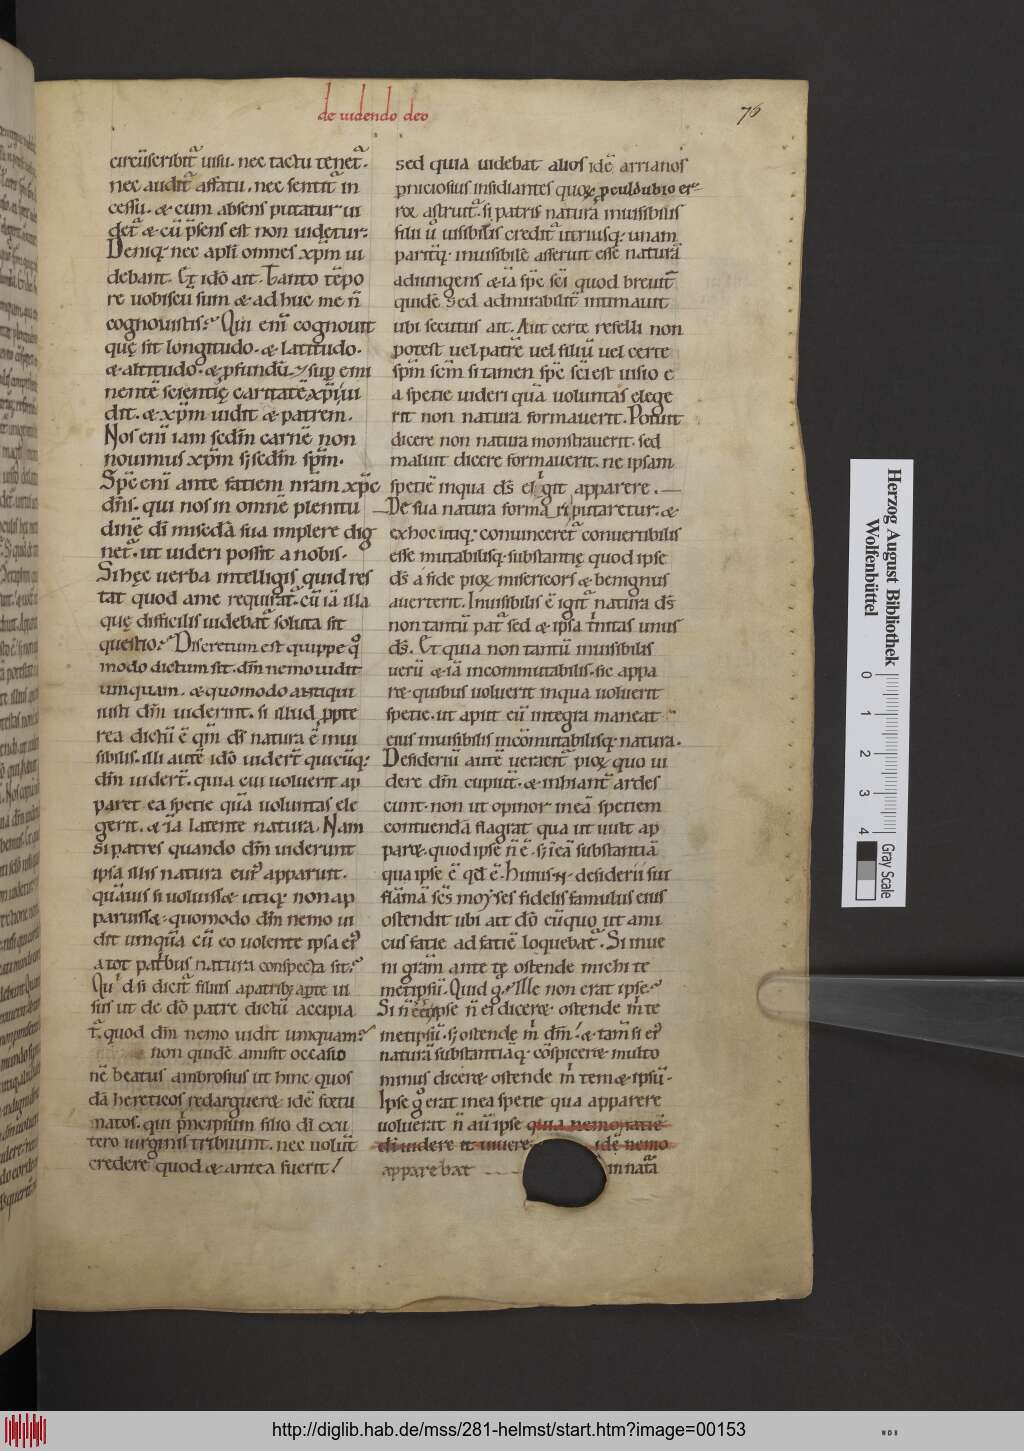 de uidendo deo
76
circūscribit᷑ uisu. nec tactu tenet᷑.
nec audit᷑ affatu. nec sentit᷑ in
cessu. & cum absens putatur ui
det᷑ & cū p̄sens est non uidetur.
Deniq; nec apl̄i omnes xp̄m ui
debant. Et idō ait. Tanto tēpo
re uobiscū sum & adhuc me n̄
cognouistis? Qui eni᷑ cognouit
quę sit longitudo. & latitudo.
& altitudo. & p̱fundū. sup̱ emi
nentē scientię caritatē xp̄i, ui
dit. & xp̄m uidit & patrem.
Nos eni᷑ iam scd̄m carnē non
nouimus xp̄m sꝫ scd̄m sp̄m.
Sp̄c eni᷑ ante faciem nr̄am xp̄c
dn̄s. qui nos in omnē plenitu
dinē dī mis̄cdā sua implere dig
net᷑. ut uideri possit a nobis.
Si hęc uerba intelligis quid res
tat quod a me requirat᷑. cū iā illa
quę difficilis uidebat᷑ soluta sit
questio? Discretum est quippe qͦ
modo dictum sit. dm̄ nemo uidit
umquam. & quomodo antiqui
iusti dm̄ uiderint. si illud p̱pte
rea dictū ē qm̄ dī natura ē inui
sibilis. illi autē idō uider̄t quicūq;
dm̄ uider̄t. quia cui uoluerit ap
paret ea specie quā uoluntas ele
gerit. & iā latente natura. Nam
si patres quando dm̄ uiderunt
ipsa illis natura ei᷒ apparuit.
quāuis si uoluiss&. utiq; non ap
paruiss&. quomodo dm̄ nemo ui
dit umquā cū eo uolente ipsa ei᷒
a tot patⁱbus natura conspecta sit?
Qui᷒d si dicit᷑ filius a patribꝫ ap̱te ui
sus ut de dō patre dictū accipia
t᷑. quod dm̄ nemo uidit umquam?
non quidē amisit occasio
nē beatus ambrosius ut hinc quos
dā hereticos redargueret. idē foetu
matos. qui pⁱncipium filio dī ex u
tero uirginis tribuunt. nec uolūt
credere quod & antea fuerit!
sed quia uidebat alios idē arrianos
p̱niciosius insidiantes quoꝝ p̱culdubio er
ror astruit᷑. si patris natura inuisibilis
filii ū uisibilis credit᷑ utriusq; unam
pariterq; inuisibilē asseruit esse naturā
adiungens & iā sp̄c scī quod breuit᷑
quidē. Sed admirabilit᷑ intimauit
ubi secutus ait. Aut certe refelli non
potest uel patrē uel filiū uel certe
sp̄m scm̄ si tamen sp̄c scī est uisio e
a specie uideri quā uoluntas elege
rit non natura formauerit. Potuit
dicere non natura monstrauerit. sed
maluit dicere formauerit. ne ipsam
speciē inqua dš eligit apparere.
De sua natura formari putaretur. &
exhoc utiq; conuinceret᷑ conuertibilis
esse mutabilisq; substantię quod ipse
dš a fide pioꝝ misericors & benignus
auerterit. Inuisibilis ē igit᷑ natura dš
non tantū pat᷑ sed & ipsa tⁱnitas unus
dš. Et quia non tantū inuisibilis
uerū & iā incommutabilis. sic appa
ret quibus uoluerit inqua uoluerit
specie. ut aput eū integra maneat
eius inuisibilis incōmutabilisq; natura.
Desideriū autē ueraciter pioꝝ quo ui
dere dm̄ cupiūt. & inhiant᷑ ardes
cunt. non ut opinor in eā speciem
contuendā flagrat qua ut uult ap
paret. quod ipse n̄ ē. sꝫ in eā substantiā
qua ipse ē qd̄ ē. Huius desiderii sui
flāmā scs̄ moyses fidelis famulus eius
ostendit ubi ait dō cū quo ut ami
cus facie ad faciē loquebat᷑. Si inue
ni grām ante te ostende michi te
metipsū. Quid g̊? Ille non erat ipse?
Si n̄ ēet ipse n̄ ei diceret ostende mⁱ te
metipsū. sꝫ ostende mⁱ dm̄. & tam̄ si ei᷒
naturā substantiāq; cōspiceret multo
minus diceret ostende mⁱ temetipsū.
Ipse g̊ erat in ea specie qua apparere
uoluerat n̄ aū ipse quia nemo faciē
dī uidere & uiuere idē nemo
apparebat in nat᷑a
Herzog August Bibliothek
Wolfenbüttel
0 1 2 3 4
Gray Scale
http://diglib.hab.de/mss/281-helmst/start.htm?image=00153
WDB